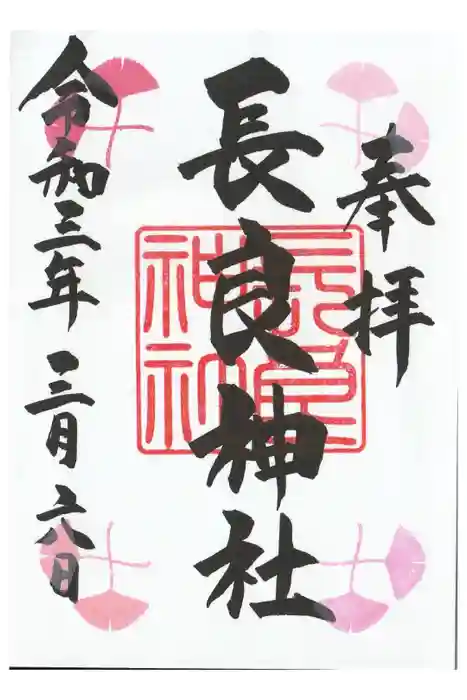 奉拝
長良神社
長良神社
令和三年 三月 六日